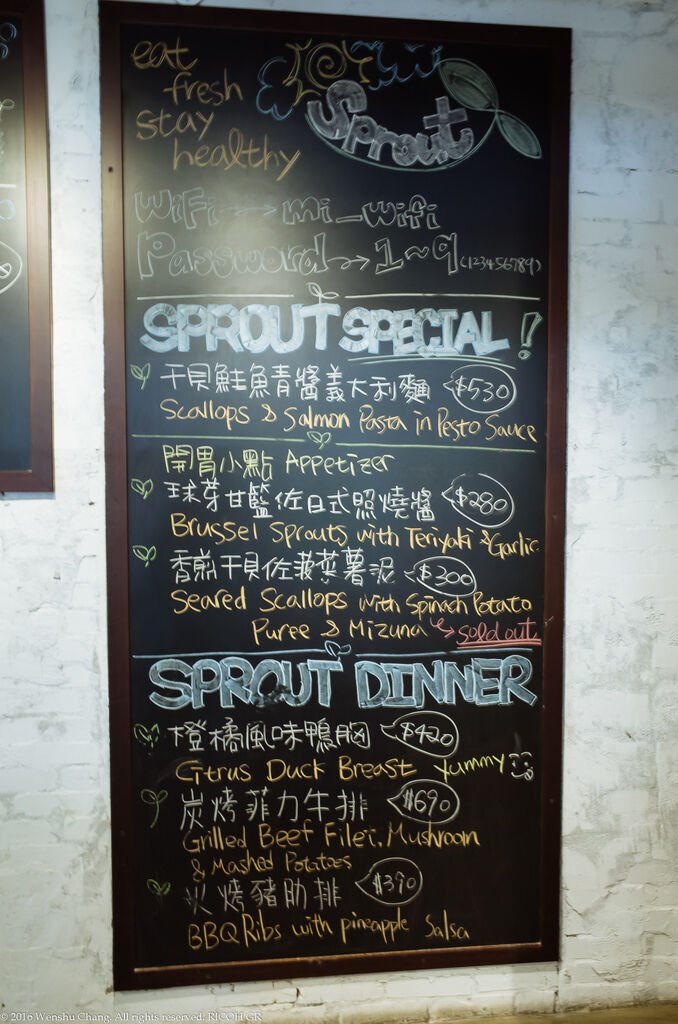 eat
fresh
stay
healthy
Sprout
WiFi → mi_wifi
Password → 1~9 (123456789)
SPROUT SPECIAL!
干貝鮭魚青醬義大利麵 $530
Scallops & Salmon Pasta in Pesto Sauce
開胃小點 Appetizer
球芽甘藍佐日式照燒醬 $280
Brussel Sprouts with Teriyaki & Garlic
香煎干貝佐菠菜薯泥 $300
Seared Scallops with Spinash Potato
Puree & Mizuna → sold out
SPROUT DINNER
橙橘風味鴨胸 $420
Citrus Duck Breast yummy
炭烤菲力牛排 $690
Grilled Beef Filet, Mushroom
& Mashed Potatoes
火烤豬肋排 $390
BBQ Ribs with pineapple Salsa
© 2016 Wenshu Chang. All rights reserved. RICOH GR